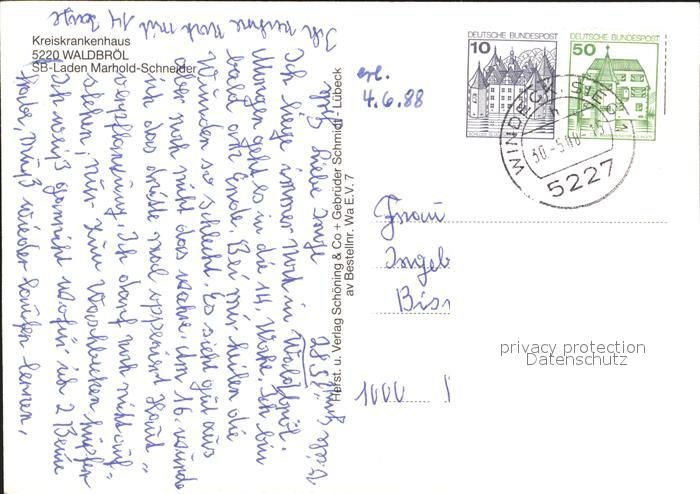 Kreiskrankenhaus
5220 WALDBRÖL
SB-Laden Marhold-Schneider
DEUTSCHE BUNDESPOST
10
DEUTSCHE BUNDESPOST
50
WINDECK, SIEG 1
30.-5.88-15
5227
erl.
4.6.88
28.5.88
Liebe
Ich liege immer noch in Waldbröl.
Morgen geht es in die 14. Woche. Ich bin
bald am Ende. Bei mir heilen die
Wunden so schlecht. Es sieht gut aus
aber noch nicht das wahre. Am 16. wurde
ich das dritte mal operiert Haut-
verpflanzung. Ich darf noch nicht auf-
stehen, nur zum Waschbecken hüpfen
Ich weiß garnicht wofür ich 2 Beine
habe, muß wieder laufen lernen.
Ich rechne noch mit 14 Tage
Herst. u. Verlag Schöning & Co + Gebrüder Schmidt - Lübeck
av Bestellnr. Wa E.V. 7
Frau
Ingeb
Bis
1000
privacy protection
Datenschutz